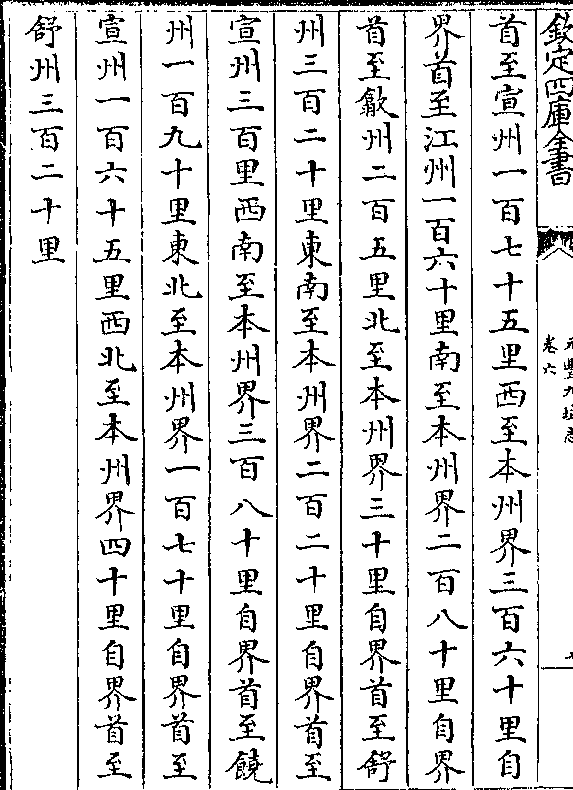 欽定四庫全書
元豐九域志
卷六
首至宣州一百七十五里西至本州界三百六十里自
界首至江州一百六十里南至本州界二百八十里自界
首至歙州二百五里北至本州界三十里自界首至舒
州三百二十里東南至本州界二百二十里自界首至
宣州三百里西南至本州界三百八十里自界首至饒
州一百九十里東北至本州界一百七十里自界首至
宣州一百六十五里西北至本州界四十里自界首至
舒州三百二十里